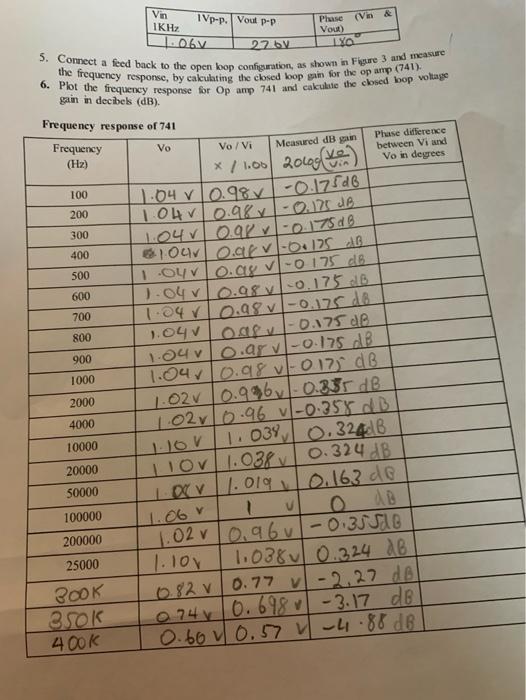 Vin 1Vp-p, 1KHz Vout p-p Phase (Vin & Vout)
1.06V 27.6V 180°
5. Connect a feed back to the open loop configuration, as shown in Figure 3 and measure
the frequency response, by calculating the closed loop gain for the op amp (741).
6. Plot the frequency response for Op amp 741 and calculate the closed loop voltage
gain in decibels (dB).
Frequency response of 741
Frequency (Hz) Vo Vo / Vi x / 1.06 Measured dB gain 20log(Vo/Vin) Phase difference between Vi and Vo in degrees
100 1.04 V 0.98 V -0.175 dB
200 1.04 V 0.98 V -0.175 dB
300 1.04 V 0.98 V -0.175 dB
400 1.04V 0.98 V -0.175 dB
500 1.04 V 0.98 V -0.175 dB
600 1.04 V 0.98 V -0.175 dB
700 1.04 V 0.98 V -0.175 dB
800 1.04 V 0.98 V -0.175 dB
900 1.04 V 0.98 V -0.175 dB
1000 1.04 V 0.98 V -0.175 dB
2000 1.02V V dB
4000 1.02V 0.96 V dB
10000 1.10 V 1.038 V 0.324 dB
20000 1.10 V 1.038 V 0.324 dB
50000 V 1.019 0.163 dB
100000 1.06 V 1 V 0 dB
200000 1.02 V 0.96 V -0.355 dB
25000 1.10 V 1.038 V 0.324 dB
300K 0.82 V 0.77 V -2.27 dB
350K 0.74 V 0.698 V -3.17 dB
400K 0.60 V 0.57 V -4.88 dB